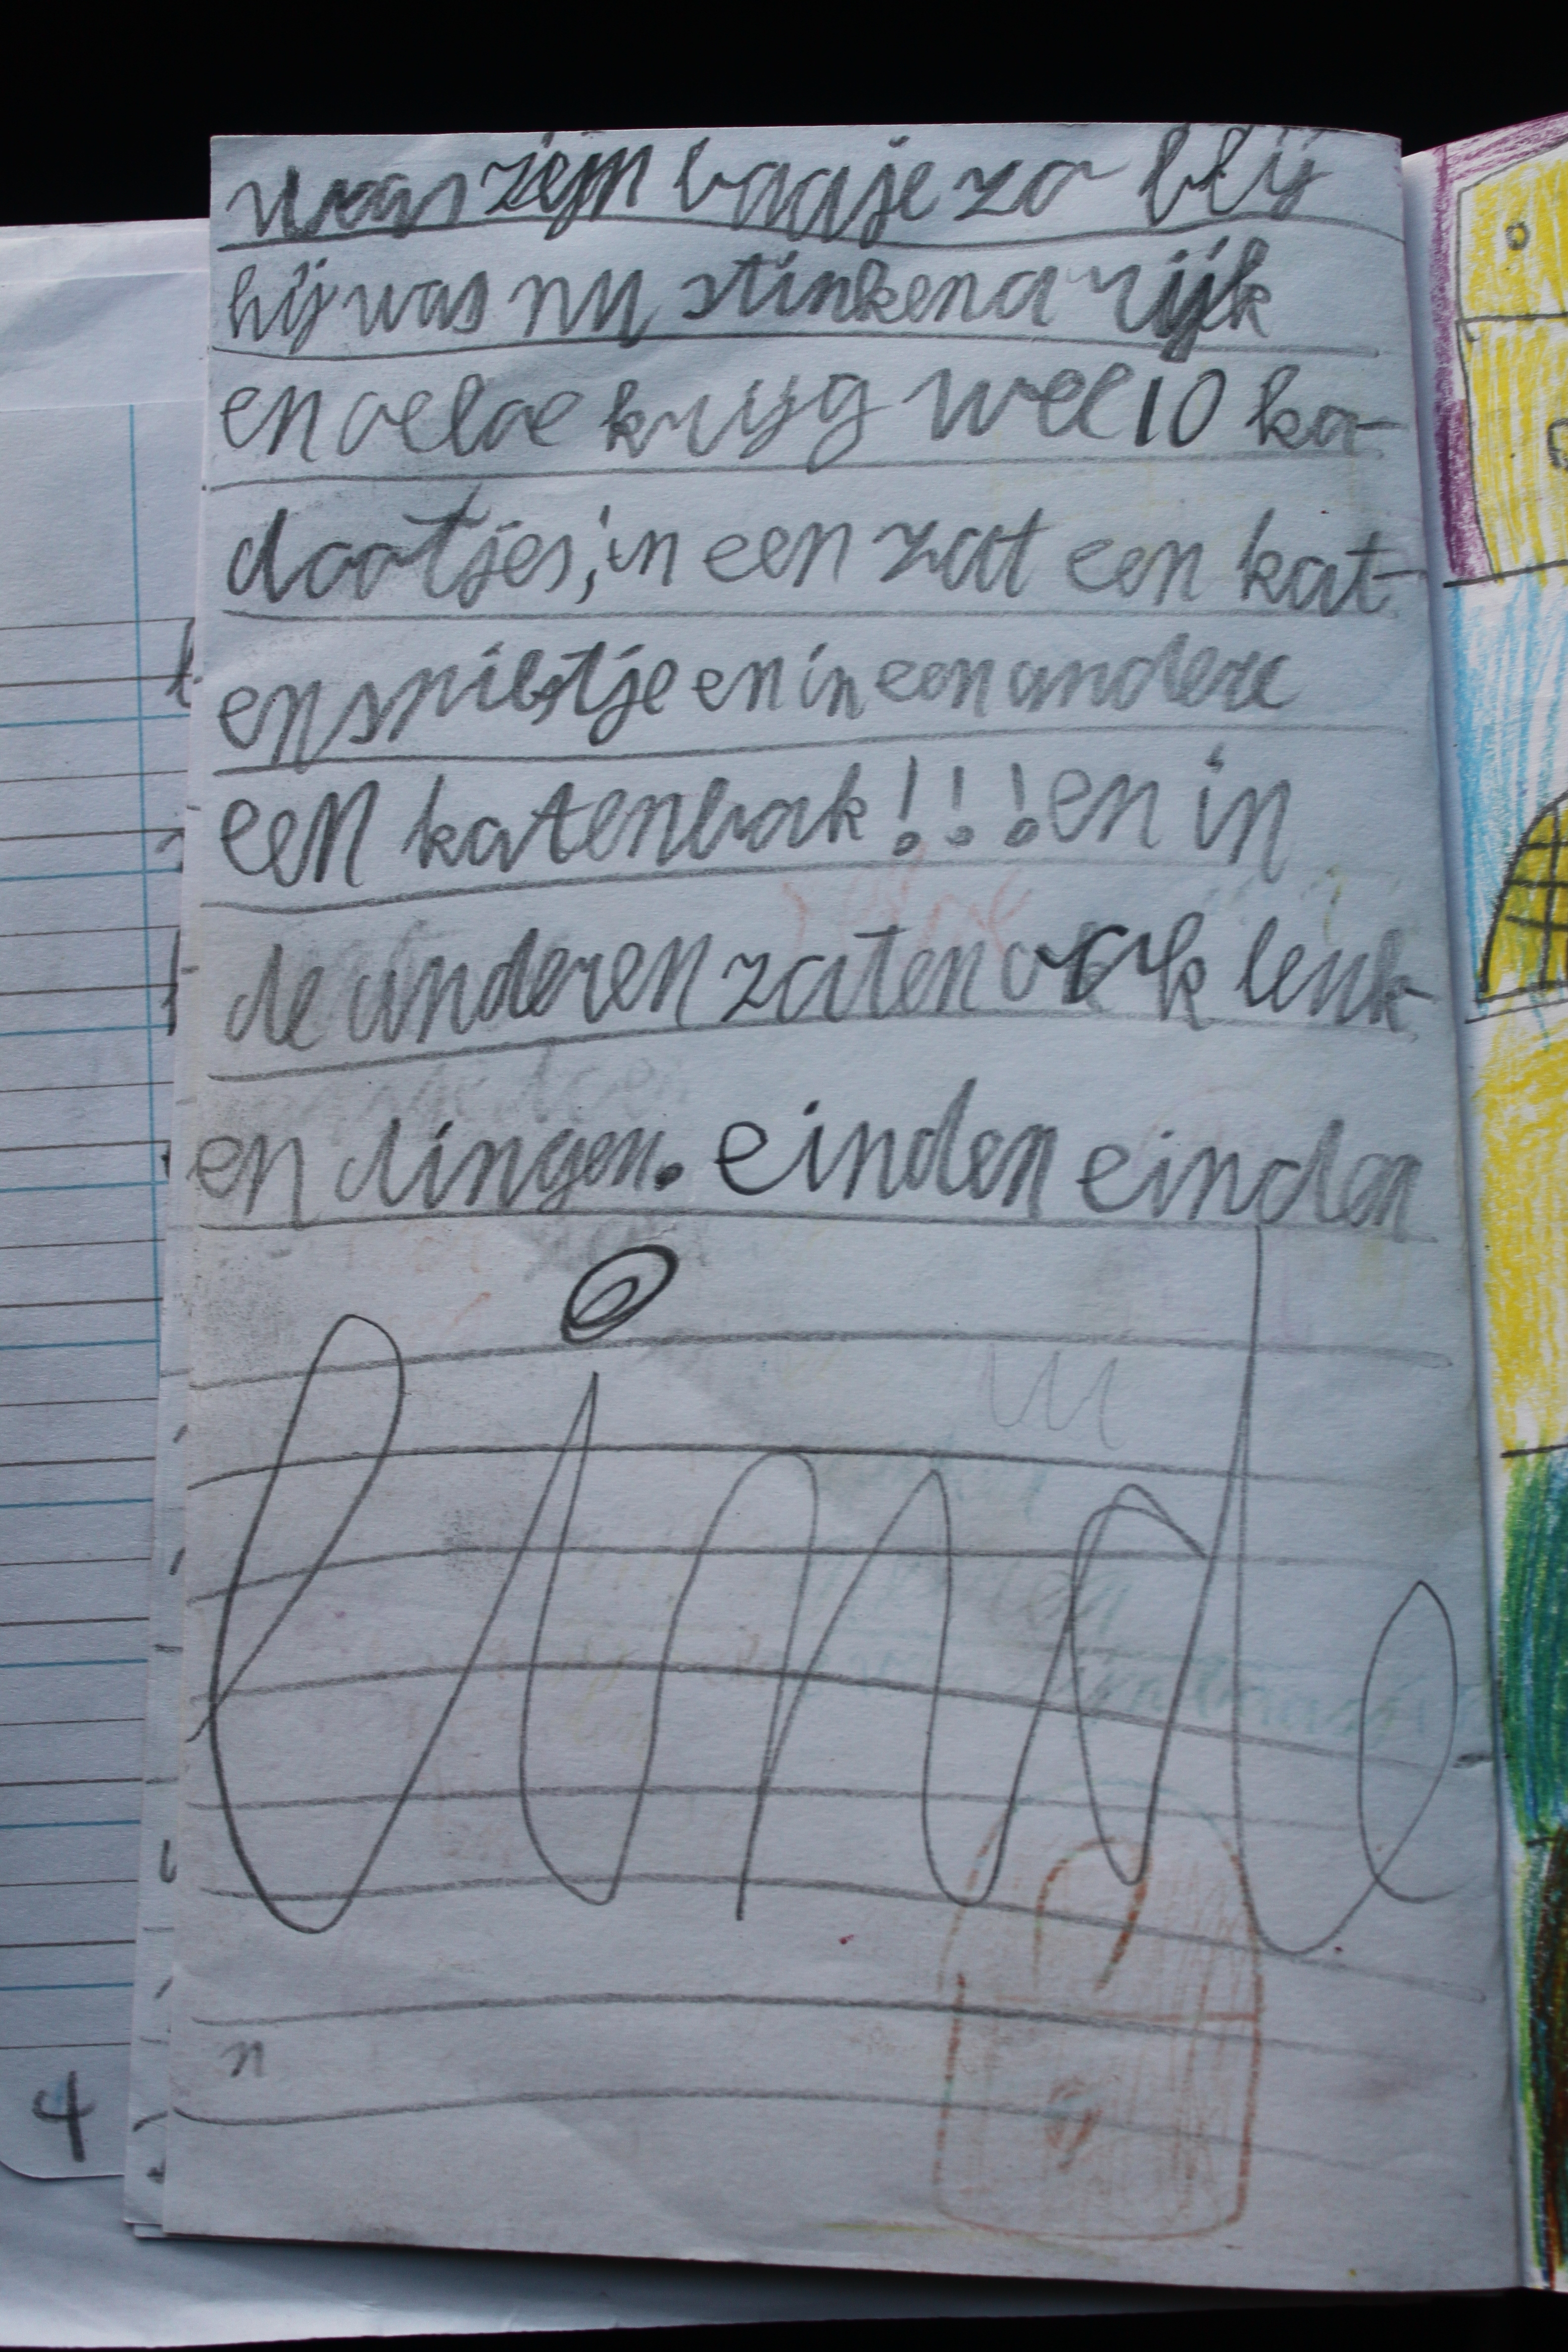 was zijn baasje zo blij
hij was nu stinkend rijk
en oeloe krijg wel 10 ka-
dootjes, in een zat een kat-
en spilstje en in een andere
een katenbak!!! en in
de anderen zaten ook leuk-
en dingen. einden einden
einde
n
4